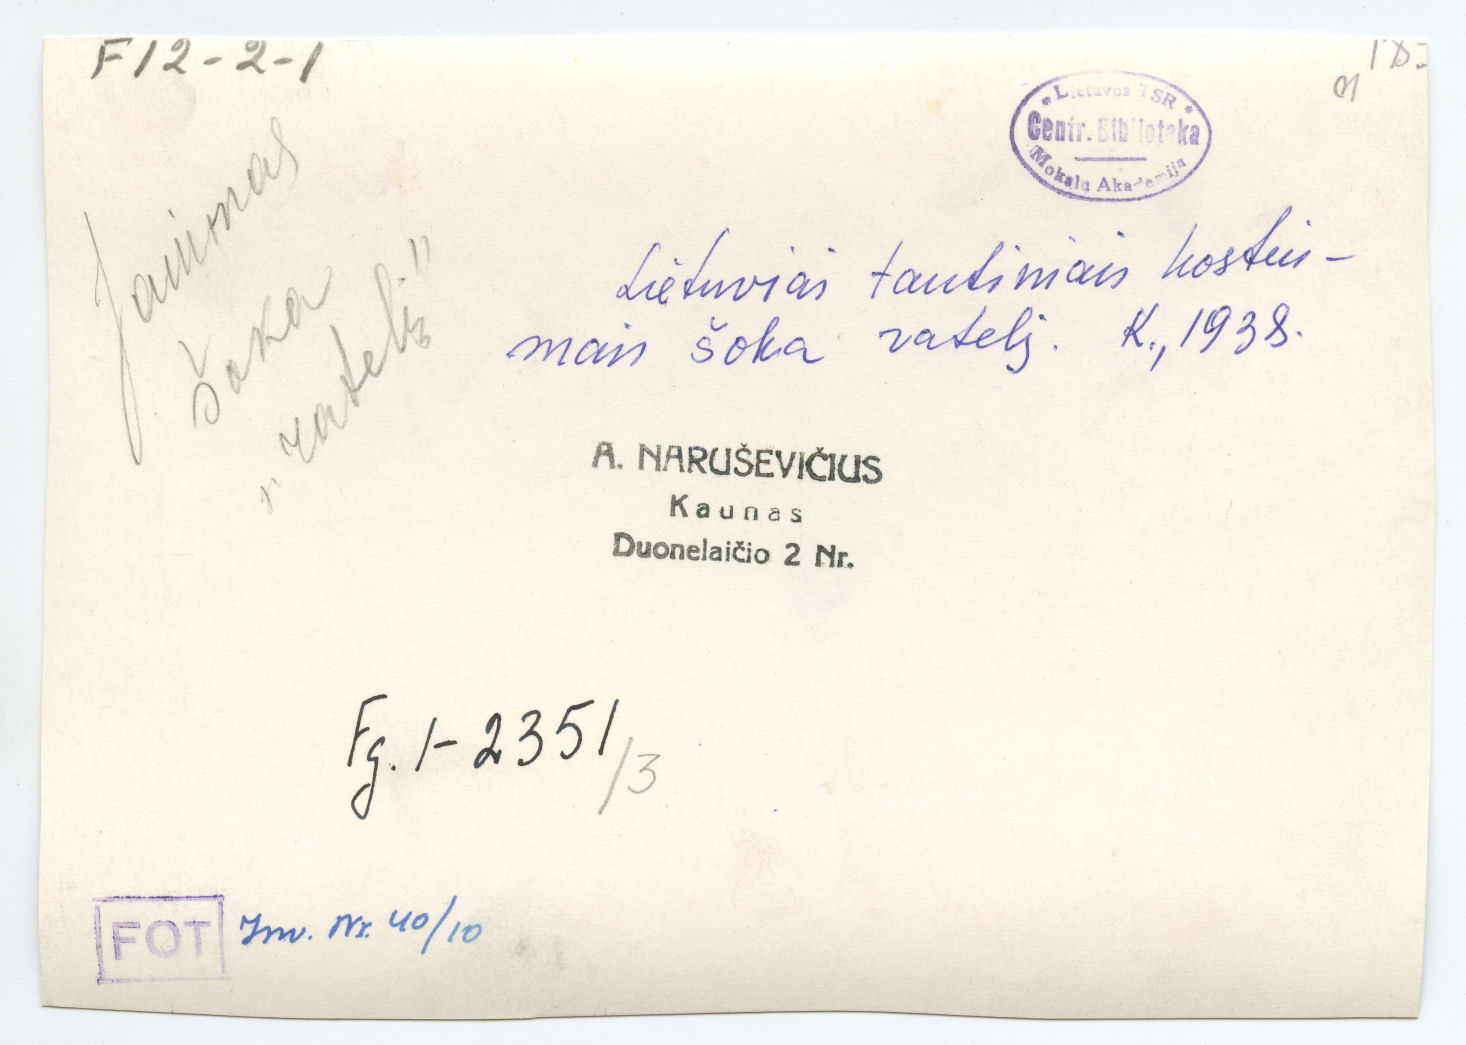 F12-2-1
Lietuvos TSR
Centr. Biblioteka
Mokslų Akademija
Jaunimas
šoka
„ratelį"
Lietuviai tautiniais kostiu-
mais šoka ratelį. K., 1938.
A. NARUŠEVIČIUS
Kaunas
Duonelaičio 2 Nr.
Fg. 1-2351/3
FOT
Inv. Nr. 40/10